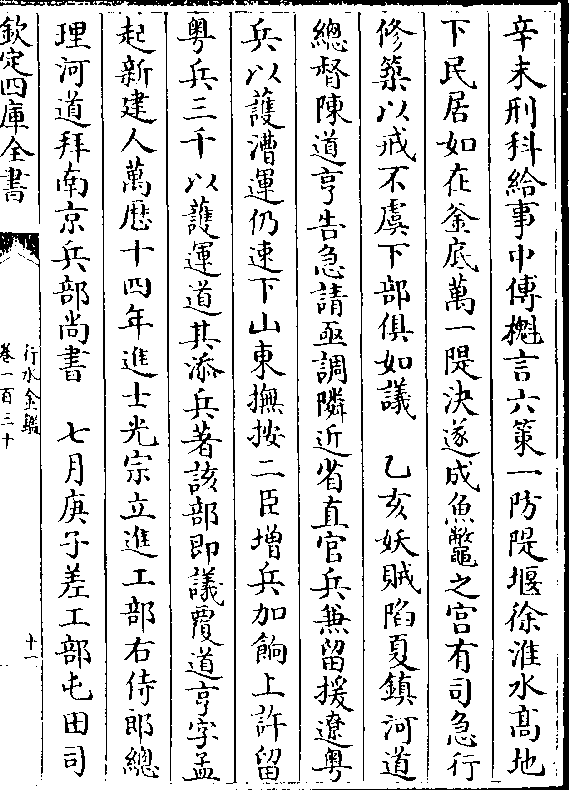 辛未刑科給事中傅櫆言六策一防隄堰徐淮水髙地
下民居如在釜底萬一隄決遂成魚鼈之宫有司急行
修築以戒不虞下部俱如議　乙亥妖賊陷夏鎮河道
總督陳道亨告急請亟調隣近省直官兵兼留援遼粤
兵以護漕運仍速下山東撫按二臣増兵加餉上許留
粤兵三千以護運道其添兵著該部即議覆道亨字孟
起新建人萬厯十四年進士光宗立進工部右侍郎總
理河道拜南京兵部尚書　七月庚子差工部屯田司
欽定四庫全書
行水金鑑
卷一百三十
十一